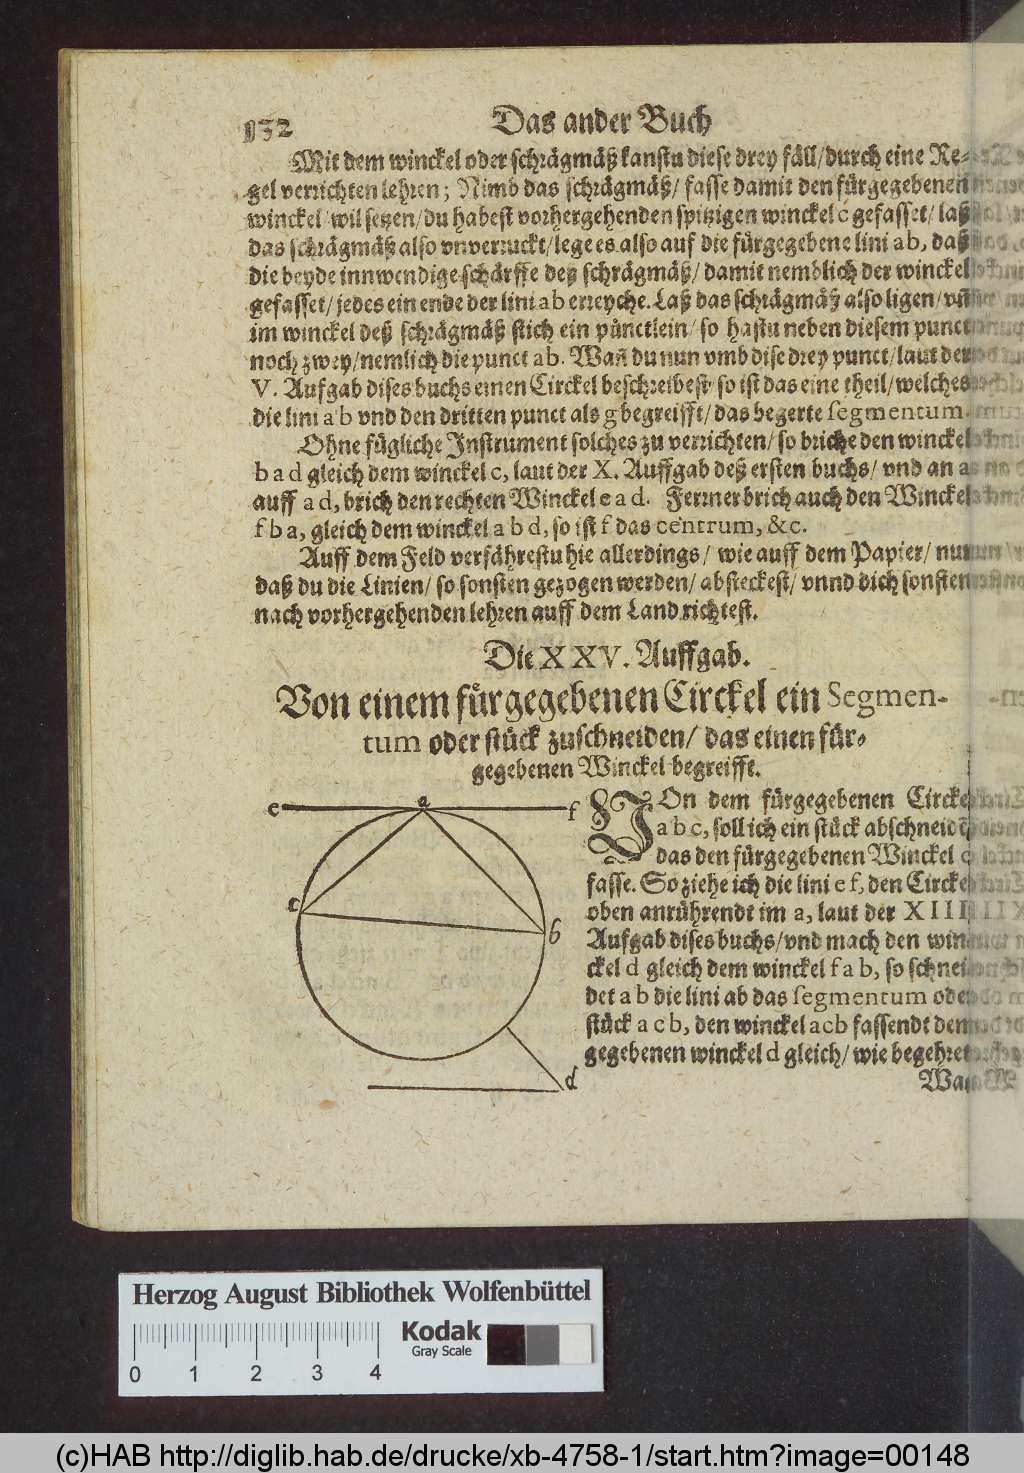 132
Das ander Buch
Mit dem winckel oder schrägmäß kanstu diese drey fäll/durch eine Re-
gel verrichten lehren; Nimb das schrägmäß/ fasse damit den fürgegebenen
winckel/ wil setzen/du habest vorhergehenden spitzigen winckel c gefasset/ laß
das schrägmäß also vnverruckt/lege es also auf die fürgegebene lini ab, daß
die beyde innwendige schärffe deß schrägmäß/ damit nemblich der winckel
gefasset/ jedes ein ende der lini a b erreyche. Laß das schrägmäß also ligen/ vn̄
im winckel deß schrägmäß stich ein pünctlein/ so hastu neben diesem punct
noch zwey/nemlich die punct ab. Wañ du nun vmb dise drey punct/ laut der
V. Aufgab dises buchs einen Circkel beschreibest/ so ist das eine theil/welches
die lini a b vnd den dritten punct als g begreifft/ das begerte segmentum.
Ohne fügliche Instrument solches zu verrichten/ so briche den winckel
b a d gleich dem winckel c, laut der X. Auffgab deß ersten buchs/ vnd an a
auff a d, brich den rechten Winckel e a d. Ferrner brich auch den Winckel
f b a, gleich dem winckel a b d, so ist f das centrum, &c.
Auff dem Feld verfährestu hie allerdings/ wie auff dem Papier/ nur
daß du die Linien/ so sonsten gezogen werden/ absteckest/ vnnd dich sonsten
nach vorhergehenden lehren auff dem Land richtest.
Die X X V. Auffgab.
Von einem fürgegebenen Circkel ein Segmen-
tum oder stück zuschneiden/ das einen für-
gegebenen Winckel begreifft.
e a f
c b
d
VOn dem fürgegebenen Circkel
a b c, soll ich ein stück abschneidē
das den fürgegebenen Winckel
fasse. So ziehe ich die lini e f, den Circkel
oben anrührendt im a, laut der X I I I
Aufgab dises buchs/vnd mach den win-
ckel d gleich dem winckel f a b, so schnei-
det a b die lini ab das segmentum oder
stück a c b, den winckel acb fassendt dem
gegebenen winckel d gleich/ wie begehret
Herzog August Bibliothek Wolfenbüttel
Kodak
Gray Scale
0 1 2 3 4
(c)HAB http://diglib.hab.de/drucke/xb-4758-1/start.htm?image=00148